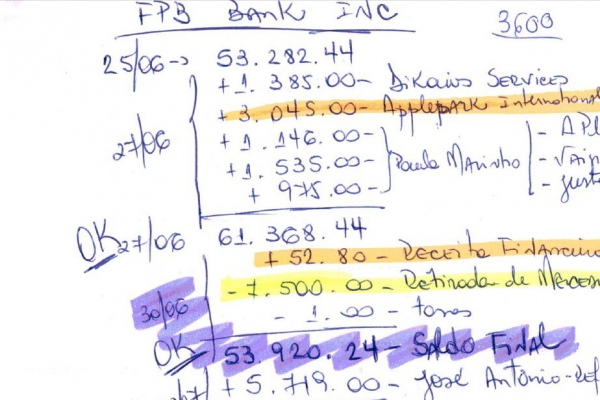 FPB BANK INC
3600
25/06 -> 53.282.44
+ 1.385.00 - Dikaios Services
+ 3.045.00 - Applepark International
27/06 + 1.146.00 -
+ 1.535.00 - Paula Marinho
+ 975.00 -
- APL
OK 27/06 61.368.44
+ 52.80 - Receita Financeira
- 7.500.00 - Retirada de
30/06 - 1.00 -
OK 53.920.24 - Saldo Final
+ 5.719.00 - José Antônio - Ref